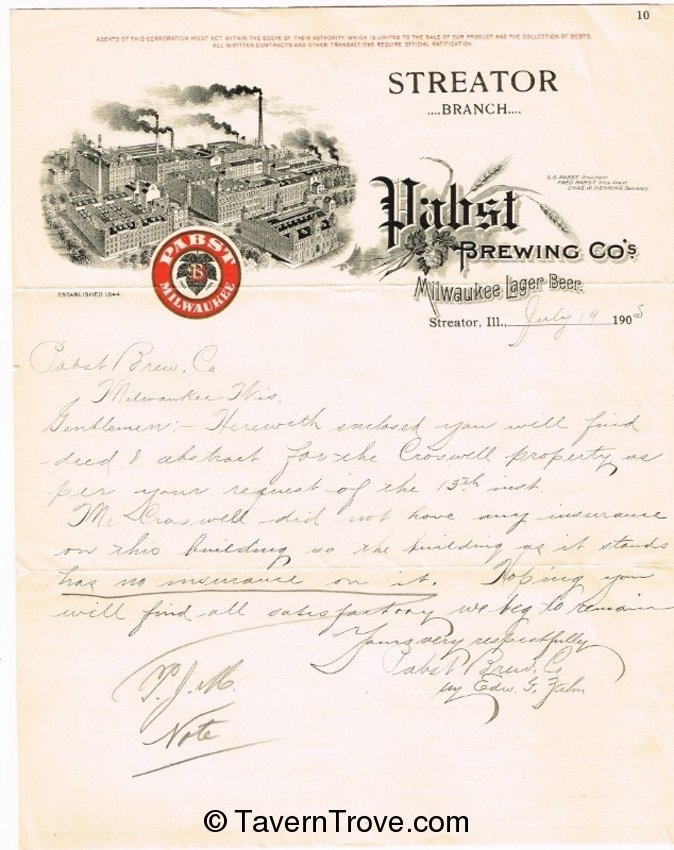 10
AGENTS OF THIS CORPORATION MUST ACT WITHIN THE SCOPE OF THEIR AUTHORITY, WHICH IS LIMITED TO THE SALE OF OUR PRODUCT AND THE COLLECTION OF DEBTS.
ALL WRITTEN CONTRACTS AND OTHER TRANSACTIONS REQUIRE OFFICIAL RATIFICATION.
STREATOR
....BRANCH....
G.G. PABST, President
FRED PABST, Vice Prest
CHAS. W. HENNING, Secretary.
Pabst
BREWING CO'S
Milwaukee Lager Beer.
PABST
B
MILWAUKEE
ESTABLISHED 1844.
Streator, Ill., July 19 1905
Pabst Brew. Co
Milwaukee Wis.
Gentlemen:- Herewith enclosed you will find
deed & abstract for the Croswell property as
per your request of the 13th inst.
Mr Croswell did not have any insurance
on this building so the building as it stands
has no insurance on it. Hoping you
will find all satisfactory we beg to remain
Yours very respectfully
Pabst Brew. Co
by Edw. G. Zahn
T. J. M.
Note
© TavernTrove.com